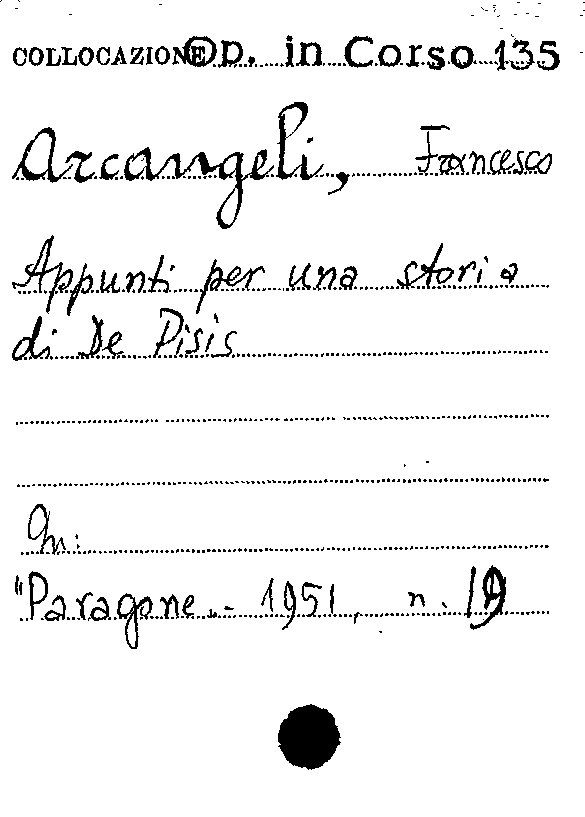 COLLOCAZIONE Op. in Corso 135
Arcangeli, Francesco
Appunti per una storia
di De Pisis
In:
"Paragone„- 1951, n. 19